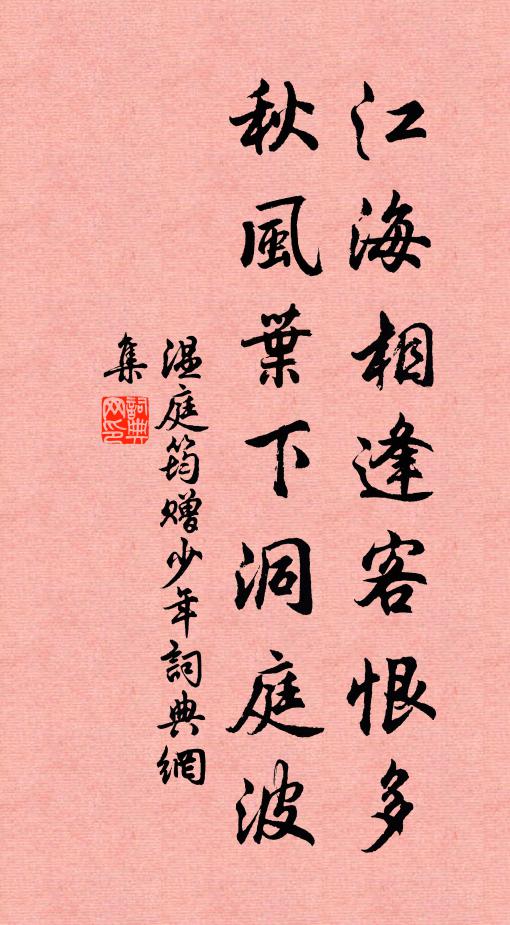 江海相逢客恨多
秋風葉下洞庭波
温庭筠贈少年詞典網
集
詞典網印